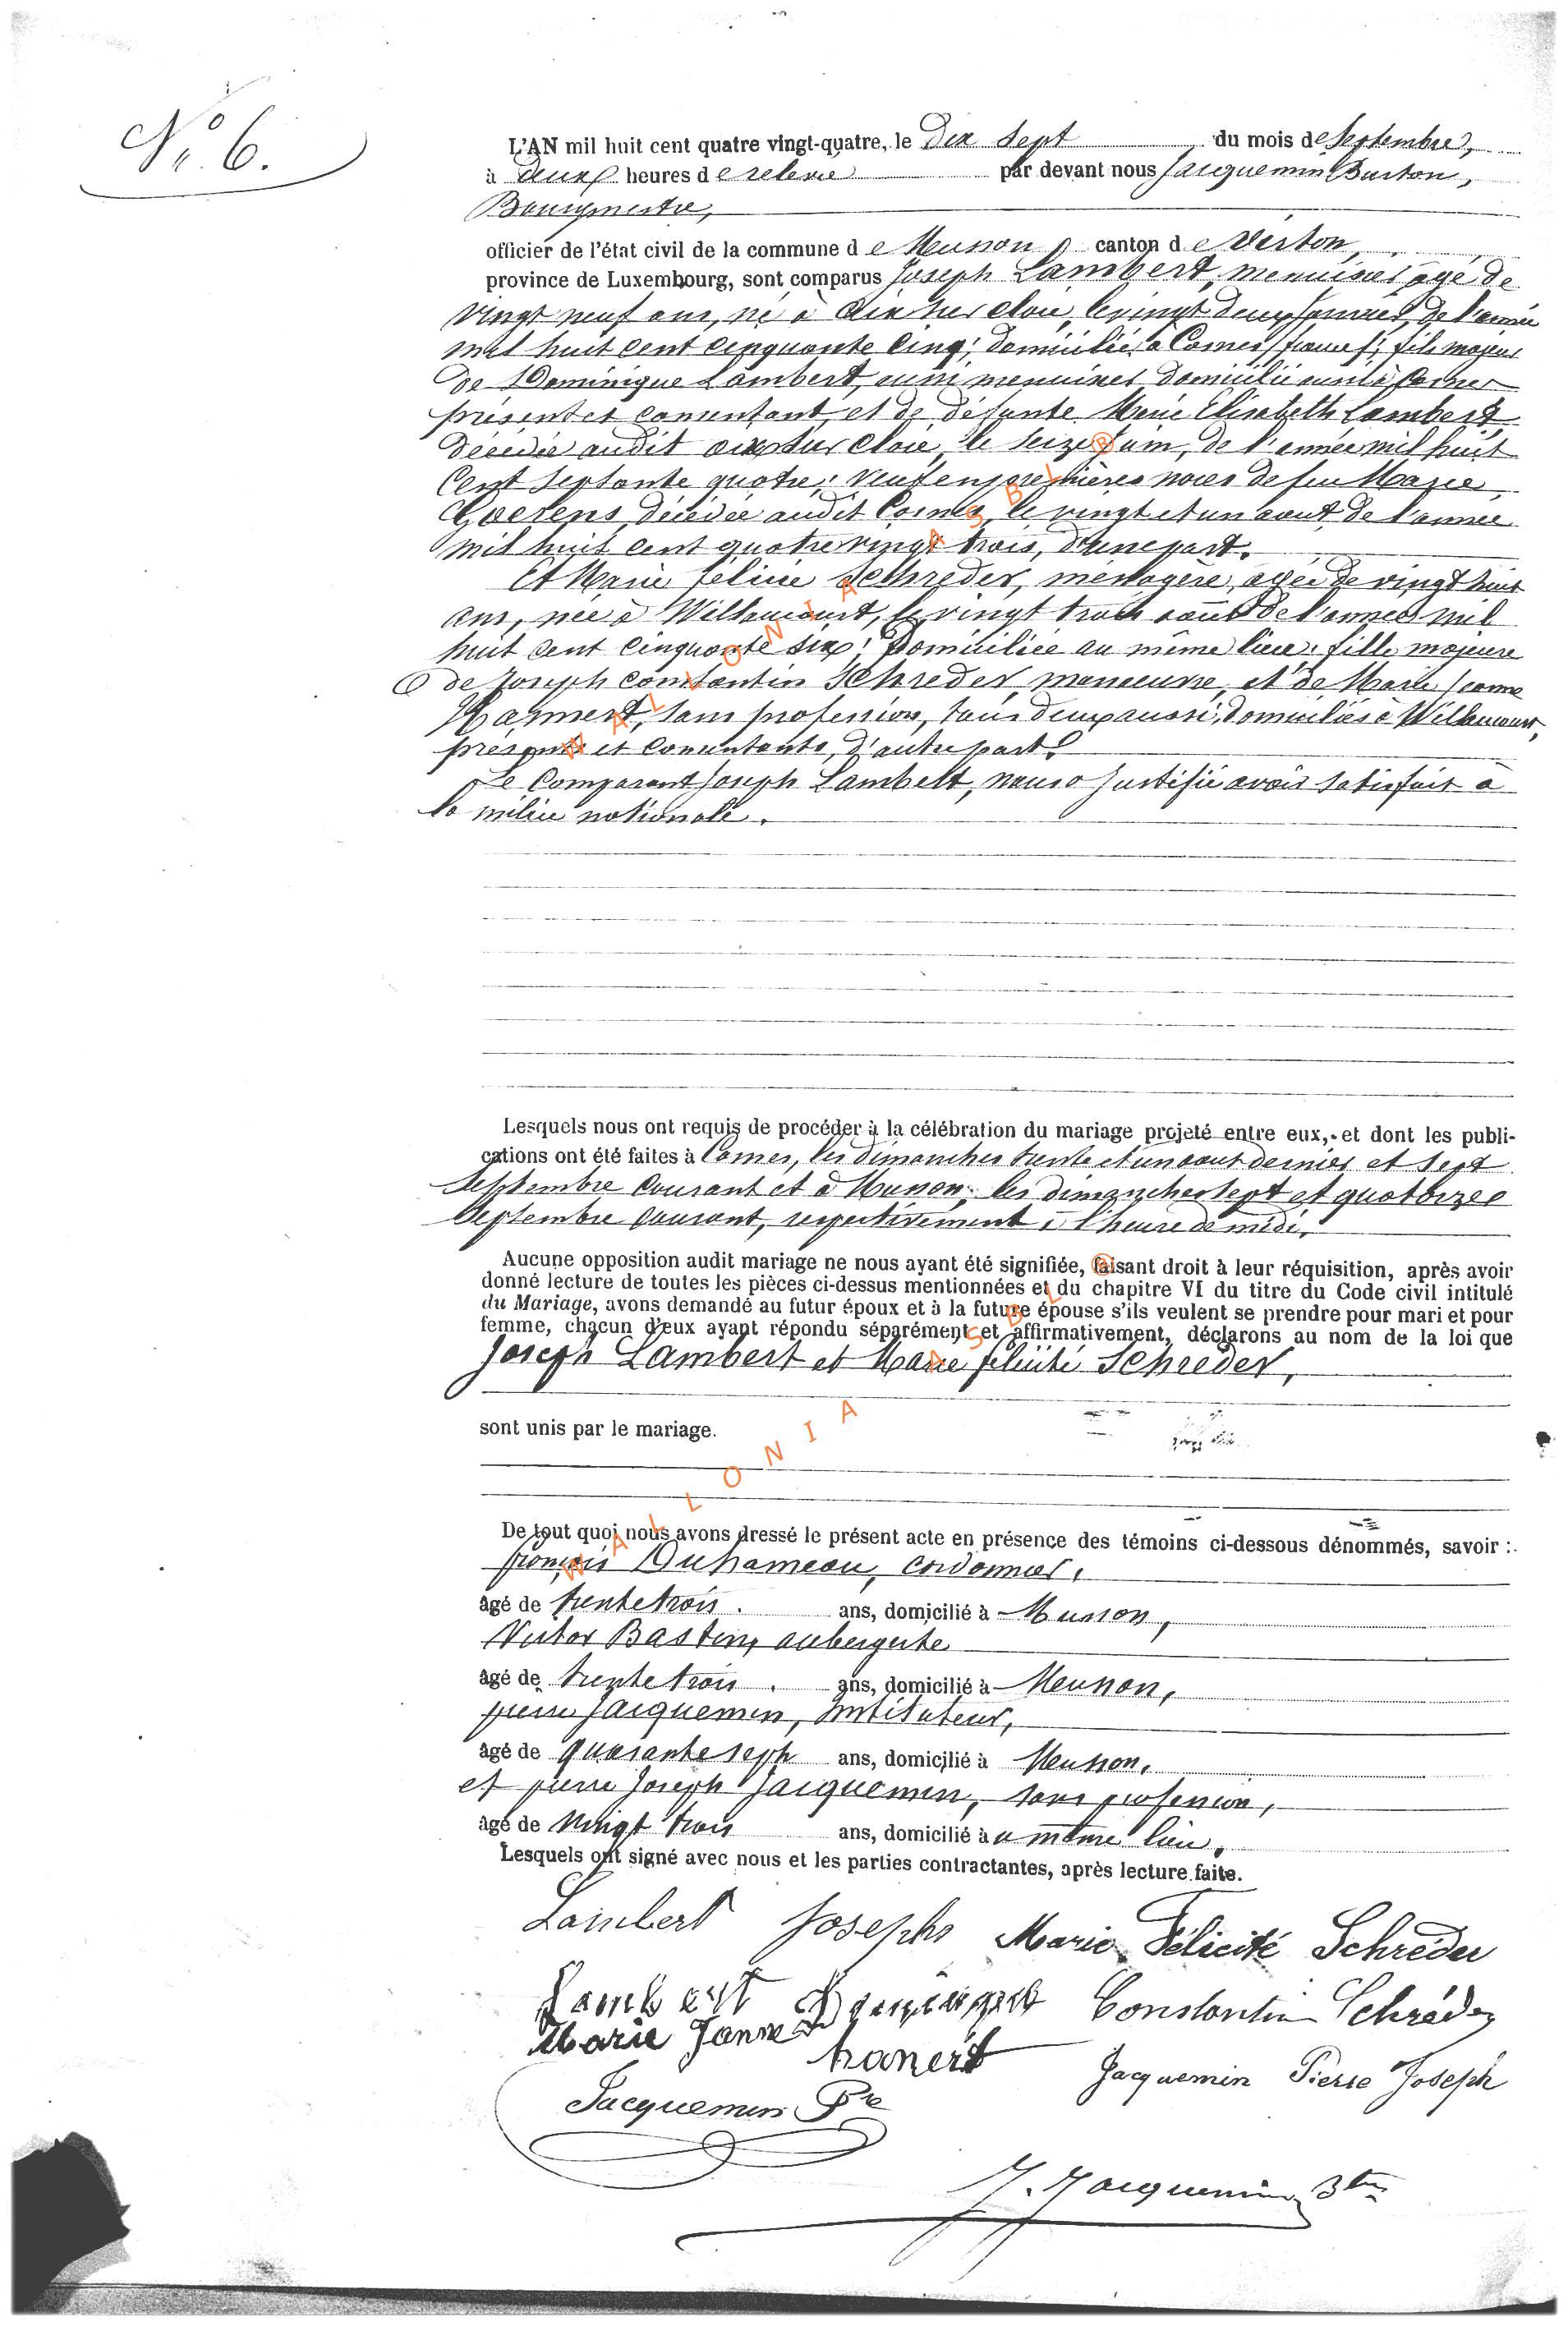 N° 6.
L'AN mil huit cent quatre vingt-quatre, le dix sept du mois de Septembre,
à deux heures de relevée par devant nous Jacquemin Burton,
Bourgmestre,
officier de l'état civil de la commune de Musson, canton de Virton,
province de Luxembourg, sont comparus Joseph Lambert, menuisier, âgé de
vingt neuf ans, né à aix sur cloie, le vingt deux janvier, de l'année
mil huit cent cinquante cinq; domicilié à Cosnes (france); fils majeur
de Dominique Lambert, aussi menuisier, domicilié aussi à Cosnes
présent et consentant, et de défunte Marie Elisabeth Lambert,
décédée audit aix sur cloie, le seize juin, de l'année mil huit
cent septante quatre; veuf en premières noces de feu Marie
Goerens, décédée audit Cosnes, le vingt et un aout de l'année
mil huit cent quatre vingt trois, d'une part.
Et Marie félicie Schreder, ménagère, agée de vingt huit
ans, née à Willancourt, le vingt trois aout de l'année mil
huit cent cinquante six; domiciliée au même lieu; fille majeure
de Joseph constantin Schreder, manoeuvre, et de Marie Jeanne
Hannert, sans profession, tous deux aussi domiciliés à Willancourt,
présents et consentants, d'autre part.
Le comparant Joseph Lambert, nous a justifié avoir satisfait à
la milice nationale.
Lesquels nous ont requis de procéder à la célébration du mariage projeté entre eux, et dont les publi-
cations ont été faites à Cosnes, les dimanches trente et un aout dernier et sept
Septembre courant et à Musson, les dimanches sept et quatorze
Septembre courant, respectivement à l'heure de midi.
Aucune opposition audit mariage ne nous ayant été signifiée, faisant droit à leur réquisition, après avoir
donné lecture de toutes les pièces ci-dessus mentionnées et du chapitre VI du titre du Code civil intitulé
du Mariage, avons demandé au futur époux et à la future épouse s'ils veulent se prendre pour mari et pour
femme, chacun d'eux ayant répondu séparément et affirmativement, déclarons au nom de la loi que
Joseph Lambert et Marie félicité Schreder,
sont unis par le mariage.
De tout quoi nous avons dressé le présent acte en présence des témoins ci-dessous dénommés, savoir :
françois Duhameau, cordonnier,
âgé de trente trois ans, domicilié à Musson,
Victor Bastin, aubergiste
âgé de trente trois ans, domicilié à Musson,
pierre Jacquemin, instituteur,
âgé de quarante sept ans, domicilié à Musson,
et pierre Joseph Jacquemin, sans profession,
âgé de vingt trois ans, domicilié à u même lieu.
Lesquels ont signé avec nous et les parties contractantes, après lecture faite.
Lambert Joseph Marie Félicité Schréder
Lambert Dominique Constantin Schréder
Marie Janne hanert
Jacquemin Pierre Joseph
Jacquemin Pre
J. Jacquemin Btn
WALLONIA ASBL ®
WALLONIA ASBL ®